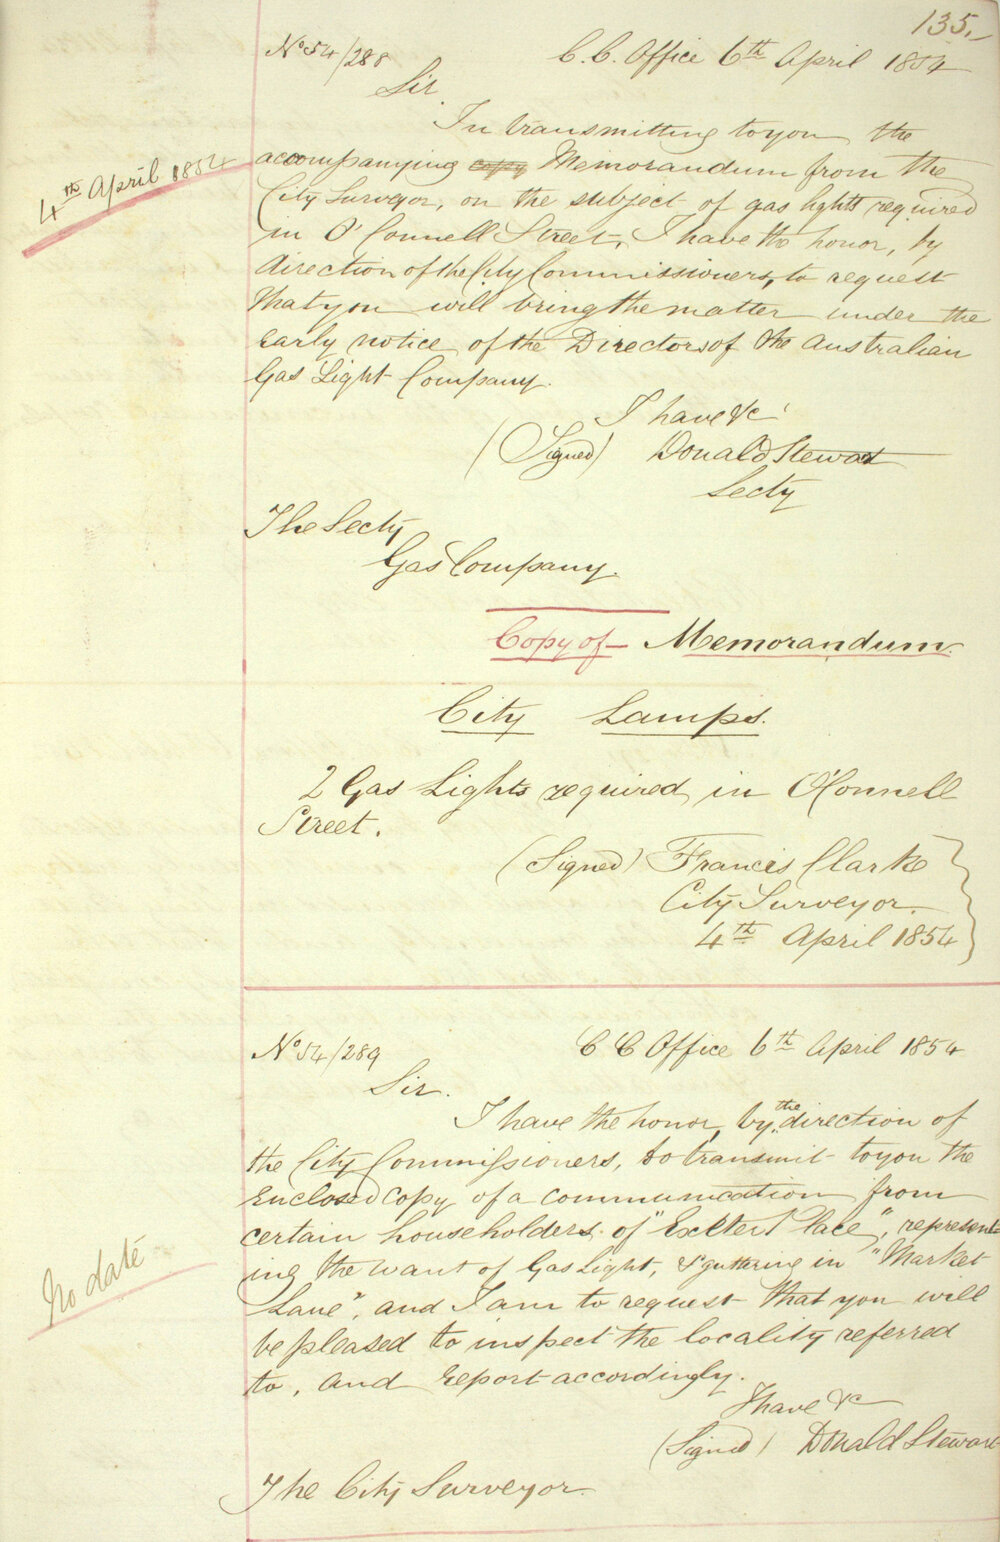 135.
No 54/288 C. C. Office 6th April 1854
Sir
In transmitting to you the
4th April 1854
accompanying copy Memorandum from the
City Surveyor, on the subject of gas lights required
in O'Connell Street, I have the honor, by
direction of the City Commissioners, to request
that you will bring the matter under the
early notice of the Directors of the Australian
Gas Light Company.
I have &c
(Signed) Donald Stewart
Secty
The Secty
Gas Company.
Copy of Memorandum.
City Lamps.
2 Gas Lights required in O'Connell
Street.
(Signed) Francis Clarke
City Surveyor.
4th April 1854
No 54/289 C C Office 6th April 1854
Sir.
I have the honor, by the direction of
the City Commissioners, to transmit to you the
enclosed copy of a communication from
certain householders of "Exeter Place", represent-
ing the want of Gas Light, & guttering in "Market
No date
Lane", and I am to request that you will
be pleased to inspect the locality referred
to, and report accordingly.
I have &c
(Signed) Donald Stewart
The City Surveyor